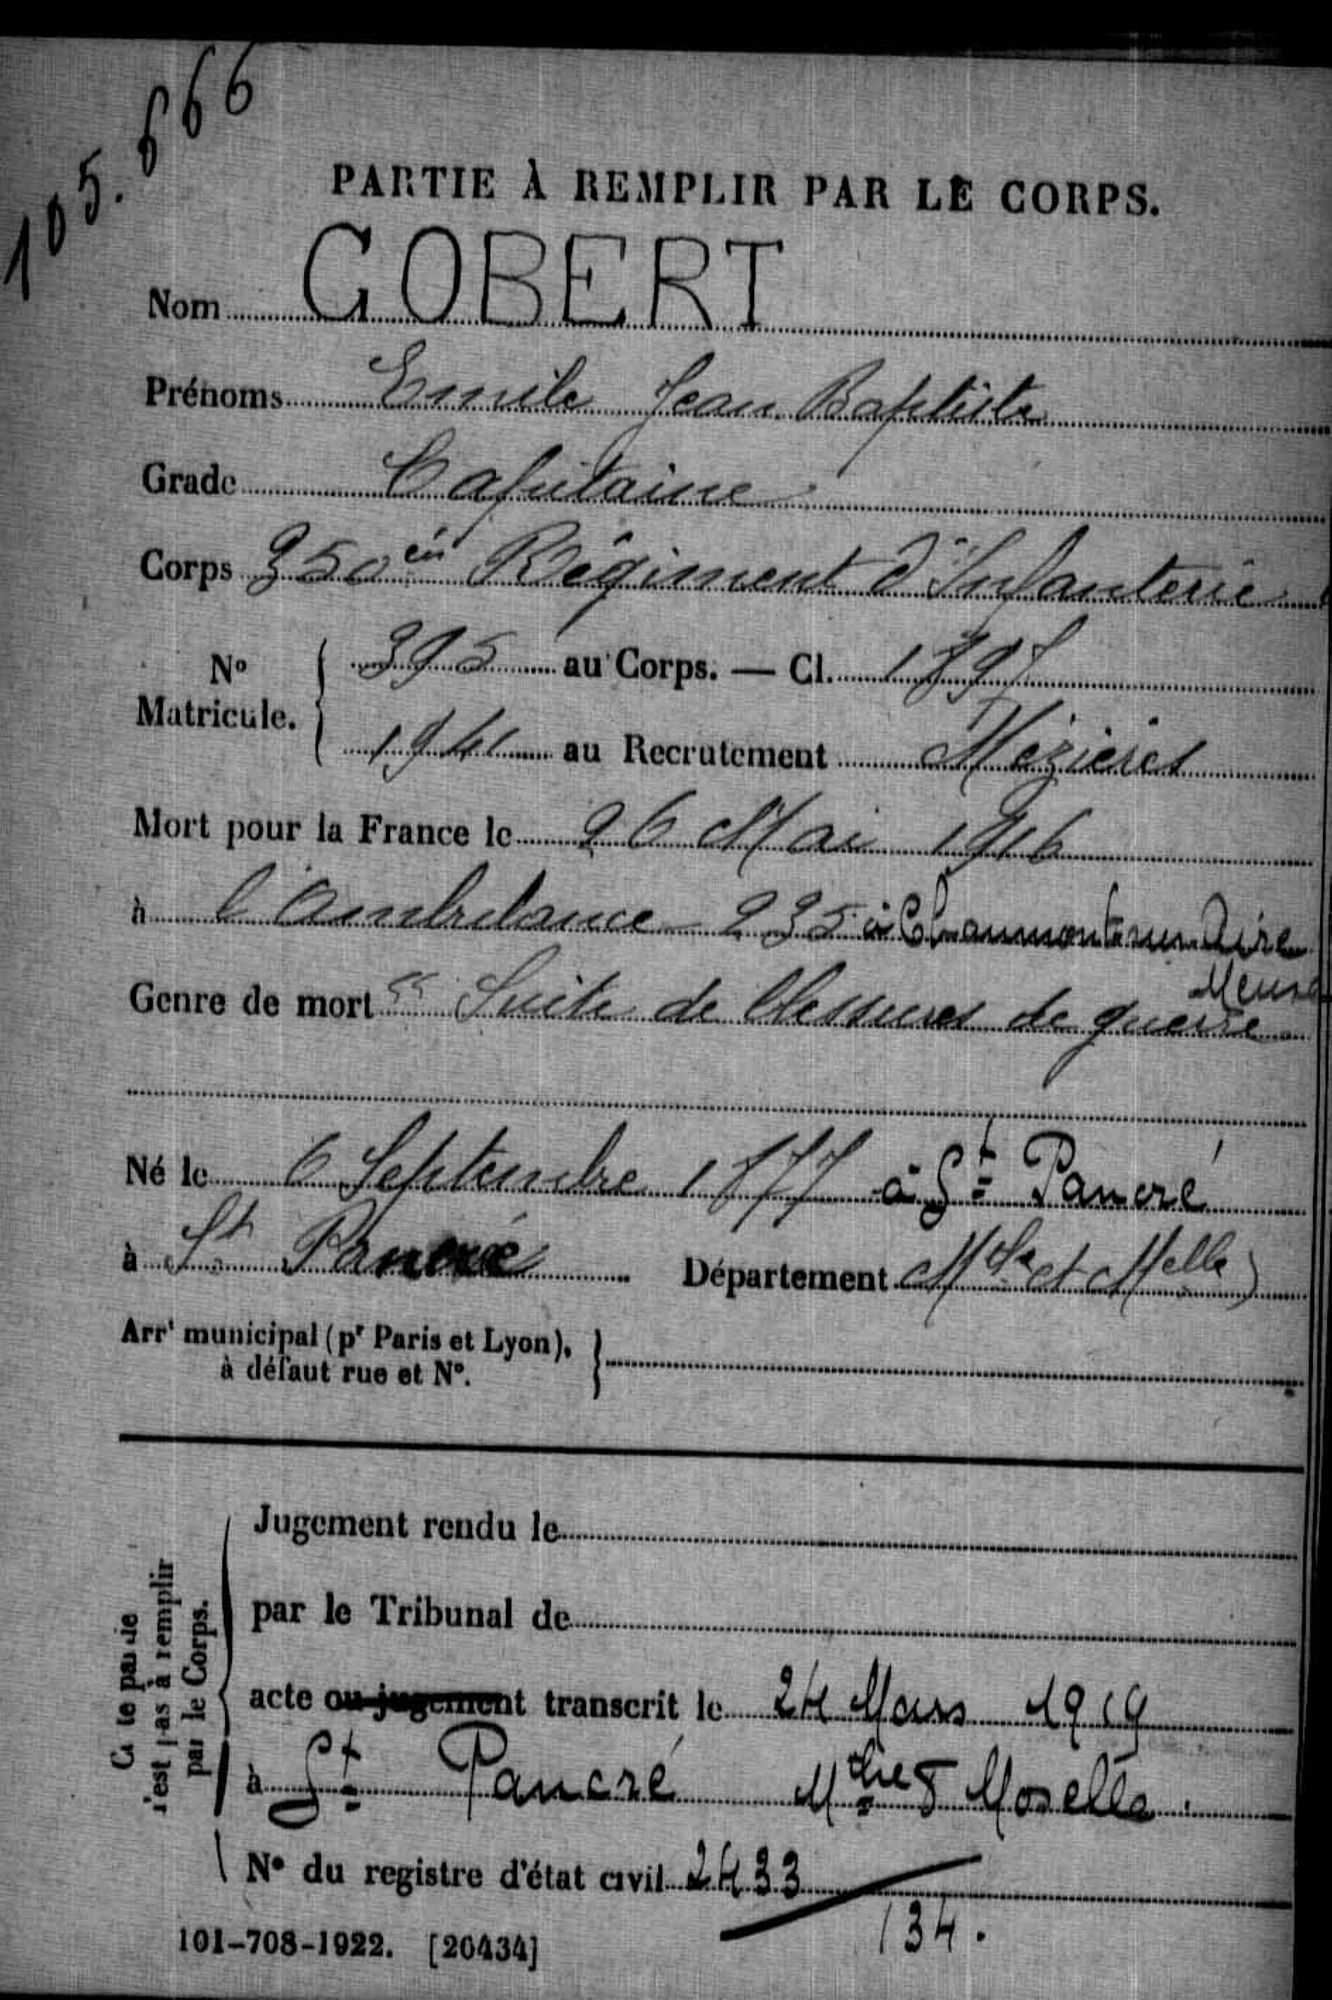 105.666
PARTIE À REMPLIR PAR LE CORPS.
Nom GOBERT
Prénoms Emile Jean Baptiste
Grade Capitaine
Corps 350 en Régiment d'Infanterie
No Matricule. 395 au Corps. — Cl. 1897
1941 au Recrutement Mézières
Mort pour la France le 26 Mai 1916
à l'Ambulance 235 à Chaumont sur Aire
Meuse
Genre de mort Suite de blessures de guerre
Né le 6 Septembre 1877 à St Pancré
à St Pancré Département Mthe et Melle)
Arrt municipal (pr Paris et Lyon),
à défaut rue et No.
Jugement rendu le
par le Tribunal de
acte ou jugement transcrit le 24 Mars 1919
à St Pancré Mthe & Moselle.
No du registre d'état civil 2433
134.
101-708-1922. [20434]
Cette partie
n'est pas à remplir
par le Corps.